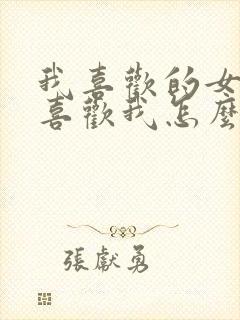 我喜歡的女
喜歡我怎麼
張獻勇